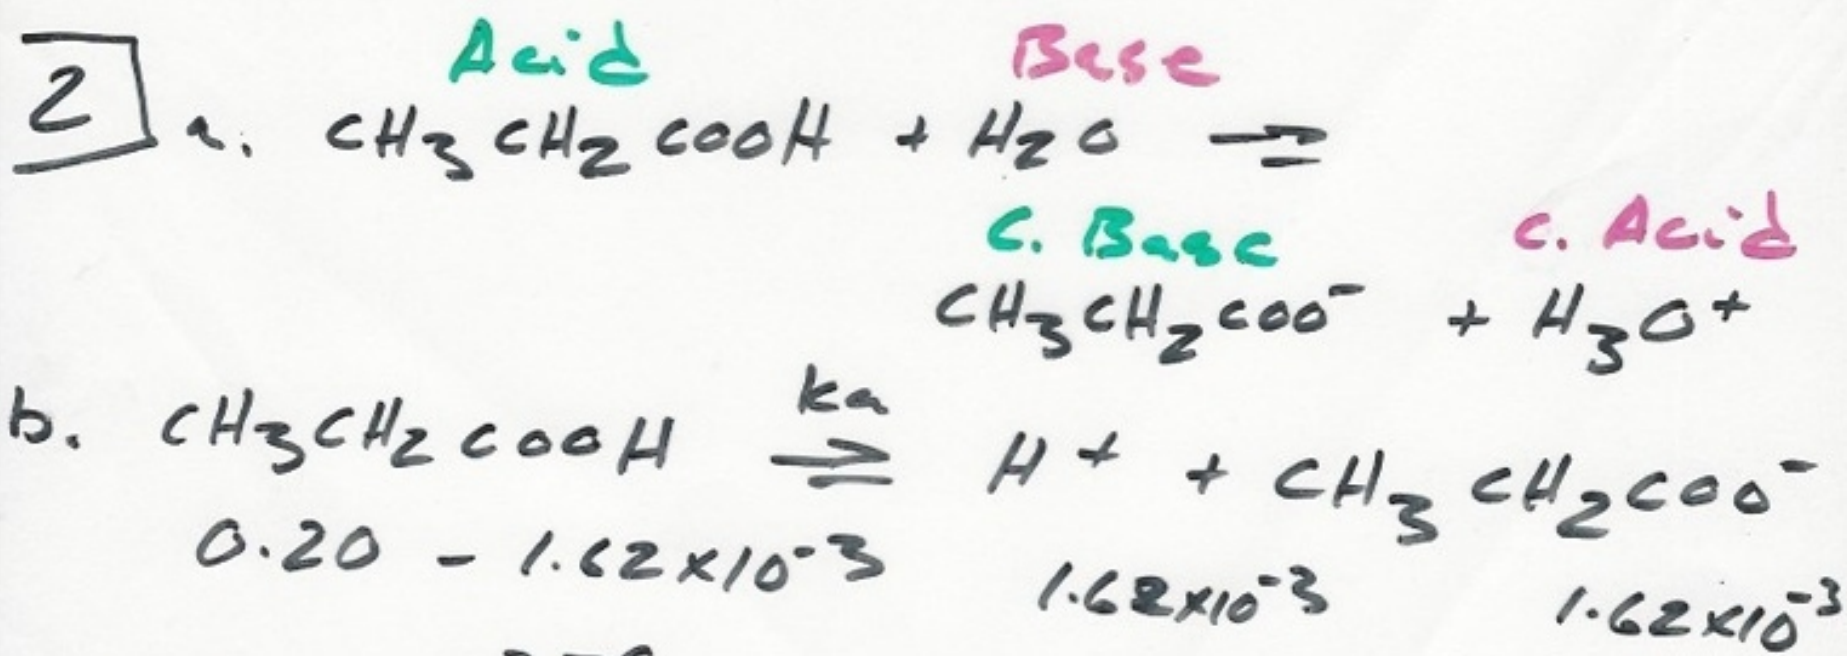 Acid Base
2 a. CH3CH2COOH + H2O ⇌
C. Base C. Acid
CH3CH2COO⁻ + H3O⁺
b. CH3CH2COOH ka ⇌ H⁺ + CH3CH2COO⁻
0.20 - 1.62×10⁻³ 1.62×10⁻³ 1.62×10⁻³